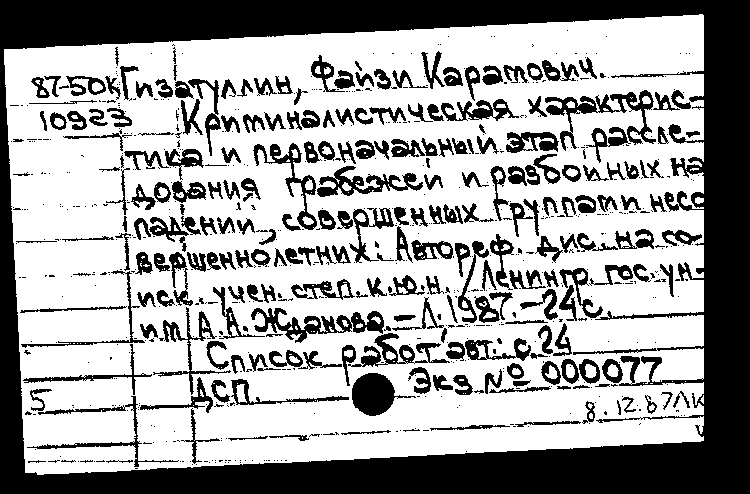 87-50к Гизатуллин, Файзи Каратович.
10923 Криминалистическая характерис-
тика и первоначальный этап рассле-
дования грабежей и разбойных на
падений, совершенных группами несо
вершеннолетних: Автореф. дис. на со-
иск. учен. степ. к.ю.н. / Ленингр. гос. ун-
им А.А.Жданова. — Л. 1987. — 24 с.
Список работ авт.: с.24
5 ДСП. Экз № 000077
8.12.87